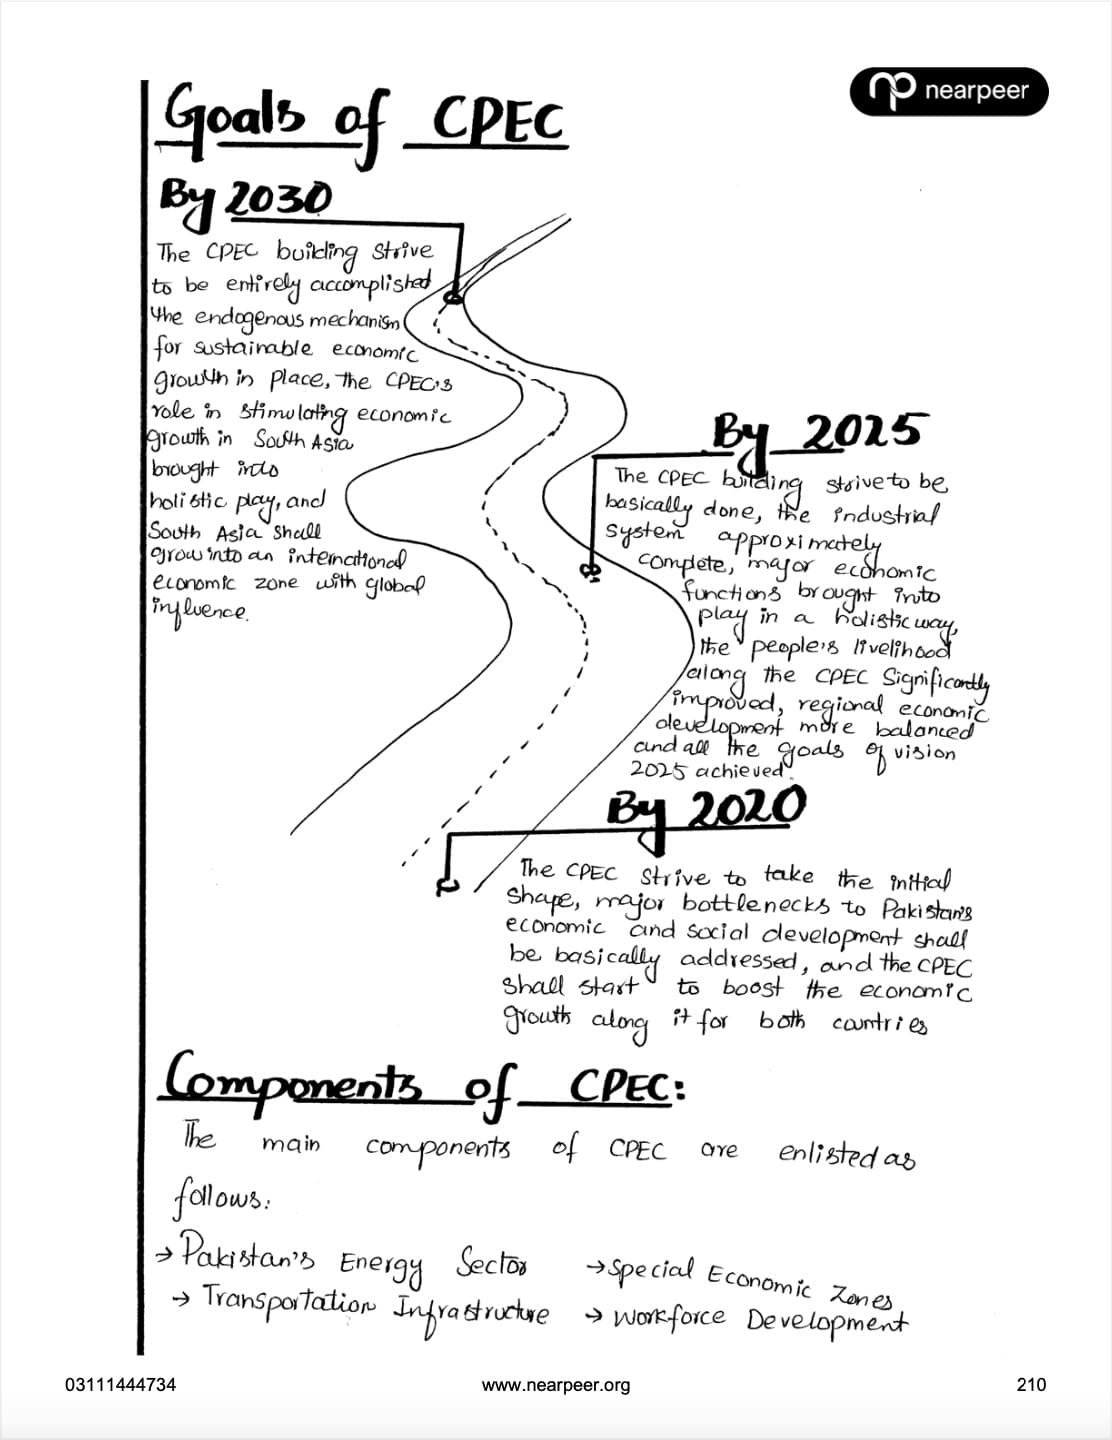 nearpeer
Goals of CPEC
By 2030
The CPEC building strive
to be entirely accomplished
the endogenous mechanism
for sustainable economic
growth in place, the CPEC's
role in stimulating economic
growth in South Asia
brought into
holistic play, and
South Asia shall
grow into an international
economic zone with global
influence.
By 2025
The CPEC building strive to be
basically done, the industrial
system approximately
complete, major economic
functions brought into
play in a holistic way,
the people's livelihood
along the CPEC Significantly
improved, regional economic
development more balanced
and all the goals of vision
2025 achieved.
By 2020
The CPEC strive to take the initial
shape, major bottlenecks to Pakistan's
economic and social development shall
be basically addressed, and the CPEC
shall start to boost the economic
growth along it for both countries
Components of CPEC:
The main components of CPEC are enlisted as
follows:
→ Pakistan's Energy Sector → Special Economic Zones
→ Transportation Infrastructure → Workforce Development
03111444734 www.nearpeer.org 210